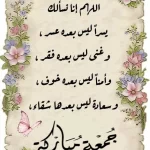 اللهم إنا نسألك
يسراً ليس بعده عسر ،
وغنى ليس بعده فقر ،
وأمناً ليس بعده خوف ،
وسعادة ليس بعدها شقاء ،
جمعة مباركة